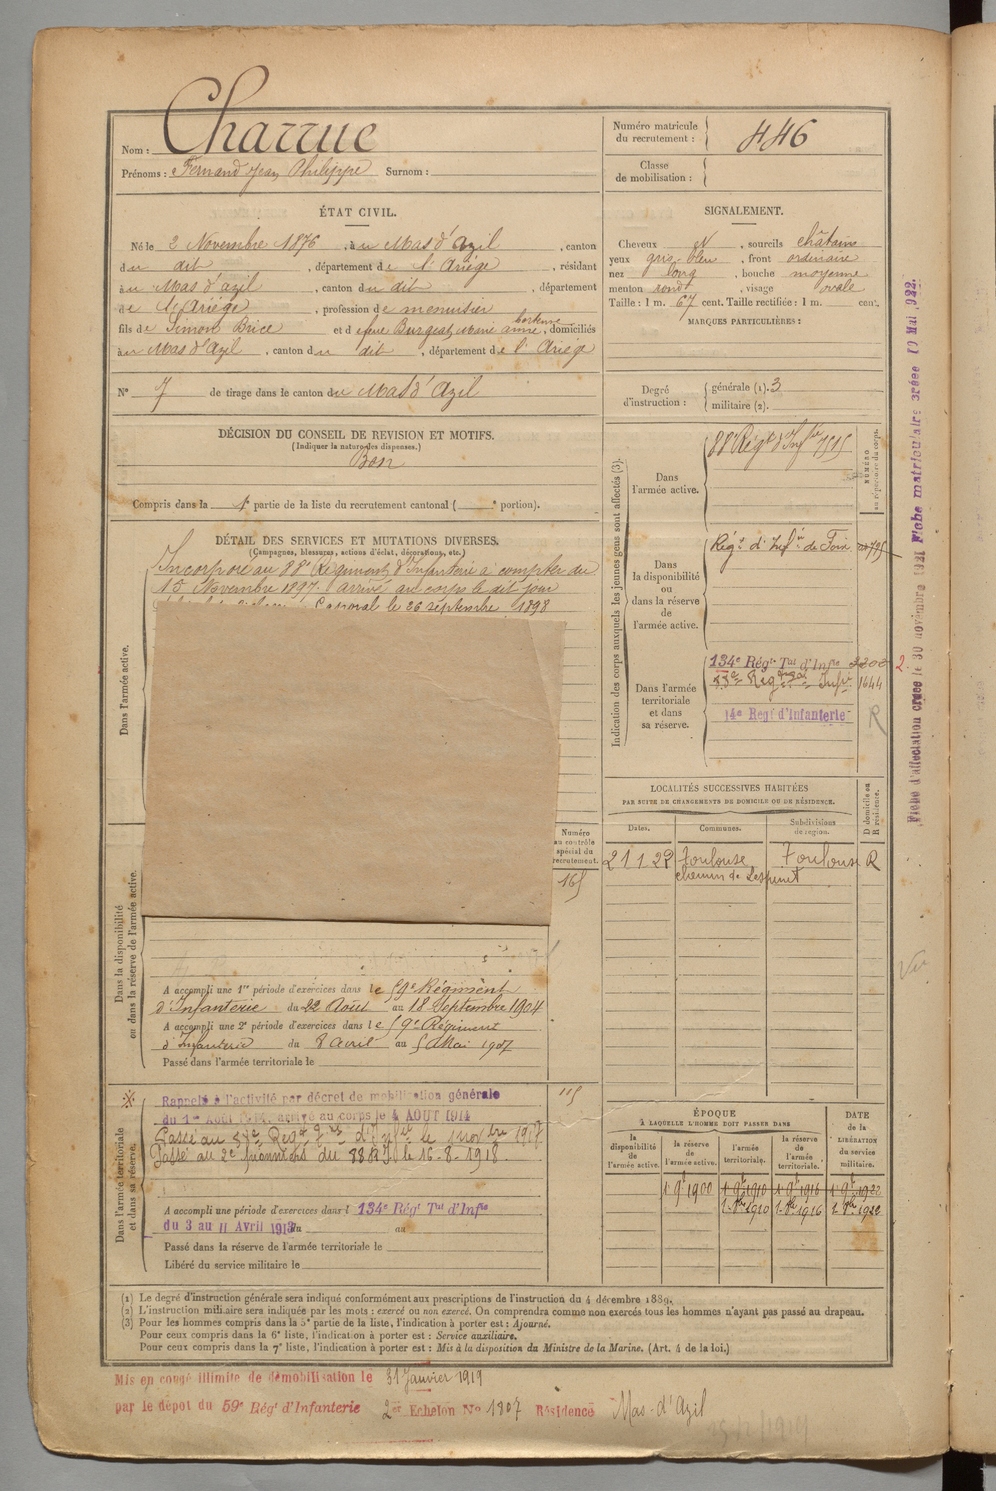 Nom : Charrue
Prénoms : Fernand Jean Philippe Surnom :
Numéro matricule du recrutement : 446
Classe de mobilisation :
ÉTAT CIVIL.
Né le 2 Novembre 1876, à u Mas d'Azil, canton
du dit, département de l'Ariège, résidant
au Mas d'azil, canton du dit, département
de l'Ariège, profession de menuisier
fils de Simon Brice et de feue Burgeat, Marie anne, domiciliés
au Mas d'Azil, canton du dit, département de l'Ariège
N° 7 de tirage dans le canton du Mas d'Azil
SIGNALEMENT.
Cheveux et, sourcils châtains
yeux gris-bleu, front ordinaire
nez long, bouche moyenne
menton rond, visage ovale
Taille : 1 m. 67 cent. Taille rectifiée : 1 m. cent.
MARQUES PARTICULIÈRES :
Degré d'instruction : générale (1). 3
militaire (2).
DÉCISION DU CONSEIL DE REVISION ET MOTIFS.
(Indiquer la nature des dispenses.)
Bon
Compris dans la 1e partie de la liste du recrutement cantonal ( e portion).
DÉTAIL DES SERVICES ET MUTATIONS DIVERSES.
(Campagnes, blessures, actions d'éclat, décorations, etc.)
Dans l'armée active.
Incorporé au 88e Régiment d'Infanterie à compter du
15 Novembre 1897. arrivé au corps le dit jour
Caporal le 26 septembre 1898
Numéro au contrôle spécial du recrutement.
165
Dans la disponibilité ou dans la réserve de l'armée active.
A accompli une 1re période d'exercices dans le 59e Régiment
d'Infanterie du 22 Août au 18 Septembre 1904
A accompli une 2e période d'exercices dans le 59e Régiment
d'Infanterie du 8 avril au 5 Mai 1907
Passé dans l'armée territoriale le
Dans l'armée territoriale et dans sa réserve.
Rappelé à l'activité par décret de mobilisation générale
du 1er Août 1914 arrivé au corps le 4 AOUT 1914
115
Passé au 2e du 88 RI le 16-8-1918
A accompli une période d'exercices dans l 134e Régt Tal d'Infie
du 3 au 11 Avril 1913 du au
Passé dans la réserve de l'armée territoriale le
Libéré du service militaire le
Indication des corps auxquels les jeunes gens sont affectés (3).
NUMÉRO au répertoire du corps.
Dans l'armée active.
88e Régt d'Infie 7515
Dans la disponibilité ou dans la réserve de l'armée active.
Régt d'Infie de Foix
Dans l'armée territoriale et dans sa réserve.
134e Régt Tal d'Infie
1644
14e Regt d'Infanterie R
LOCALITÉS SUCCESSIVES HABITÉES
PAR SUITE DE CHANGEMENTS DE DOMICILE OU DE RÉSIDENCE.
Dates. Communes. Subdivisions de région. D domicile ou R résidence.
21 1 29 Toulouse Toulouse R
chemin de Lespinet
ÉPOQUE
À LAQUELLE L'HOMME DOIT PASSER DANS
la disponibilité de l'armée active.
la réserve de l'armée active.
l'armée territoriale.
la réserve de l'armée territoriale.
DATE de la LIBÉRATION du service militaire.
1r 9bre 1900 1r 9bre 1910 1r 9bre 1916 1r 9bre 1922
Fiche d'affectation créée le 30 novembre 1921 Fiche matriculaire créée 10 Mai 1922.
Vu
(1) Le degré d'instruction générale sera indiqué conformément aux prescriptions de l'instruction du 4 décembre 1889.
(2) L'instruction militaire sera indiquée par les mots : exercé ou non exercé. On comprendra comme non exercés tous les hommes n'ayant pas passé au drapeau.
(3) Pour les hommes compris dans la 5e partie de la liste, l'indication à porter est : Ajourné.
Pour ceux compris dans la 6e liste, l'indication à porter est : Service auxiliaire.
Pour ceux compris dans la 7e liste, l'indication à porter est : Mis à la disposition du Ministre de la Marine. (Art. 4 de la loi.)
Mis en congé illimité de démobilisation le 31 Janvier 1919
par le dépot du 59e Régt d'Infanterie 2er Echelon No 1807 Résidence Mas-d'Azil